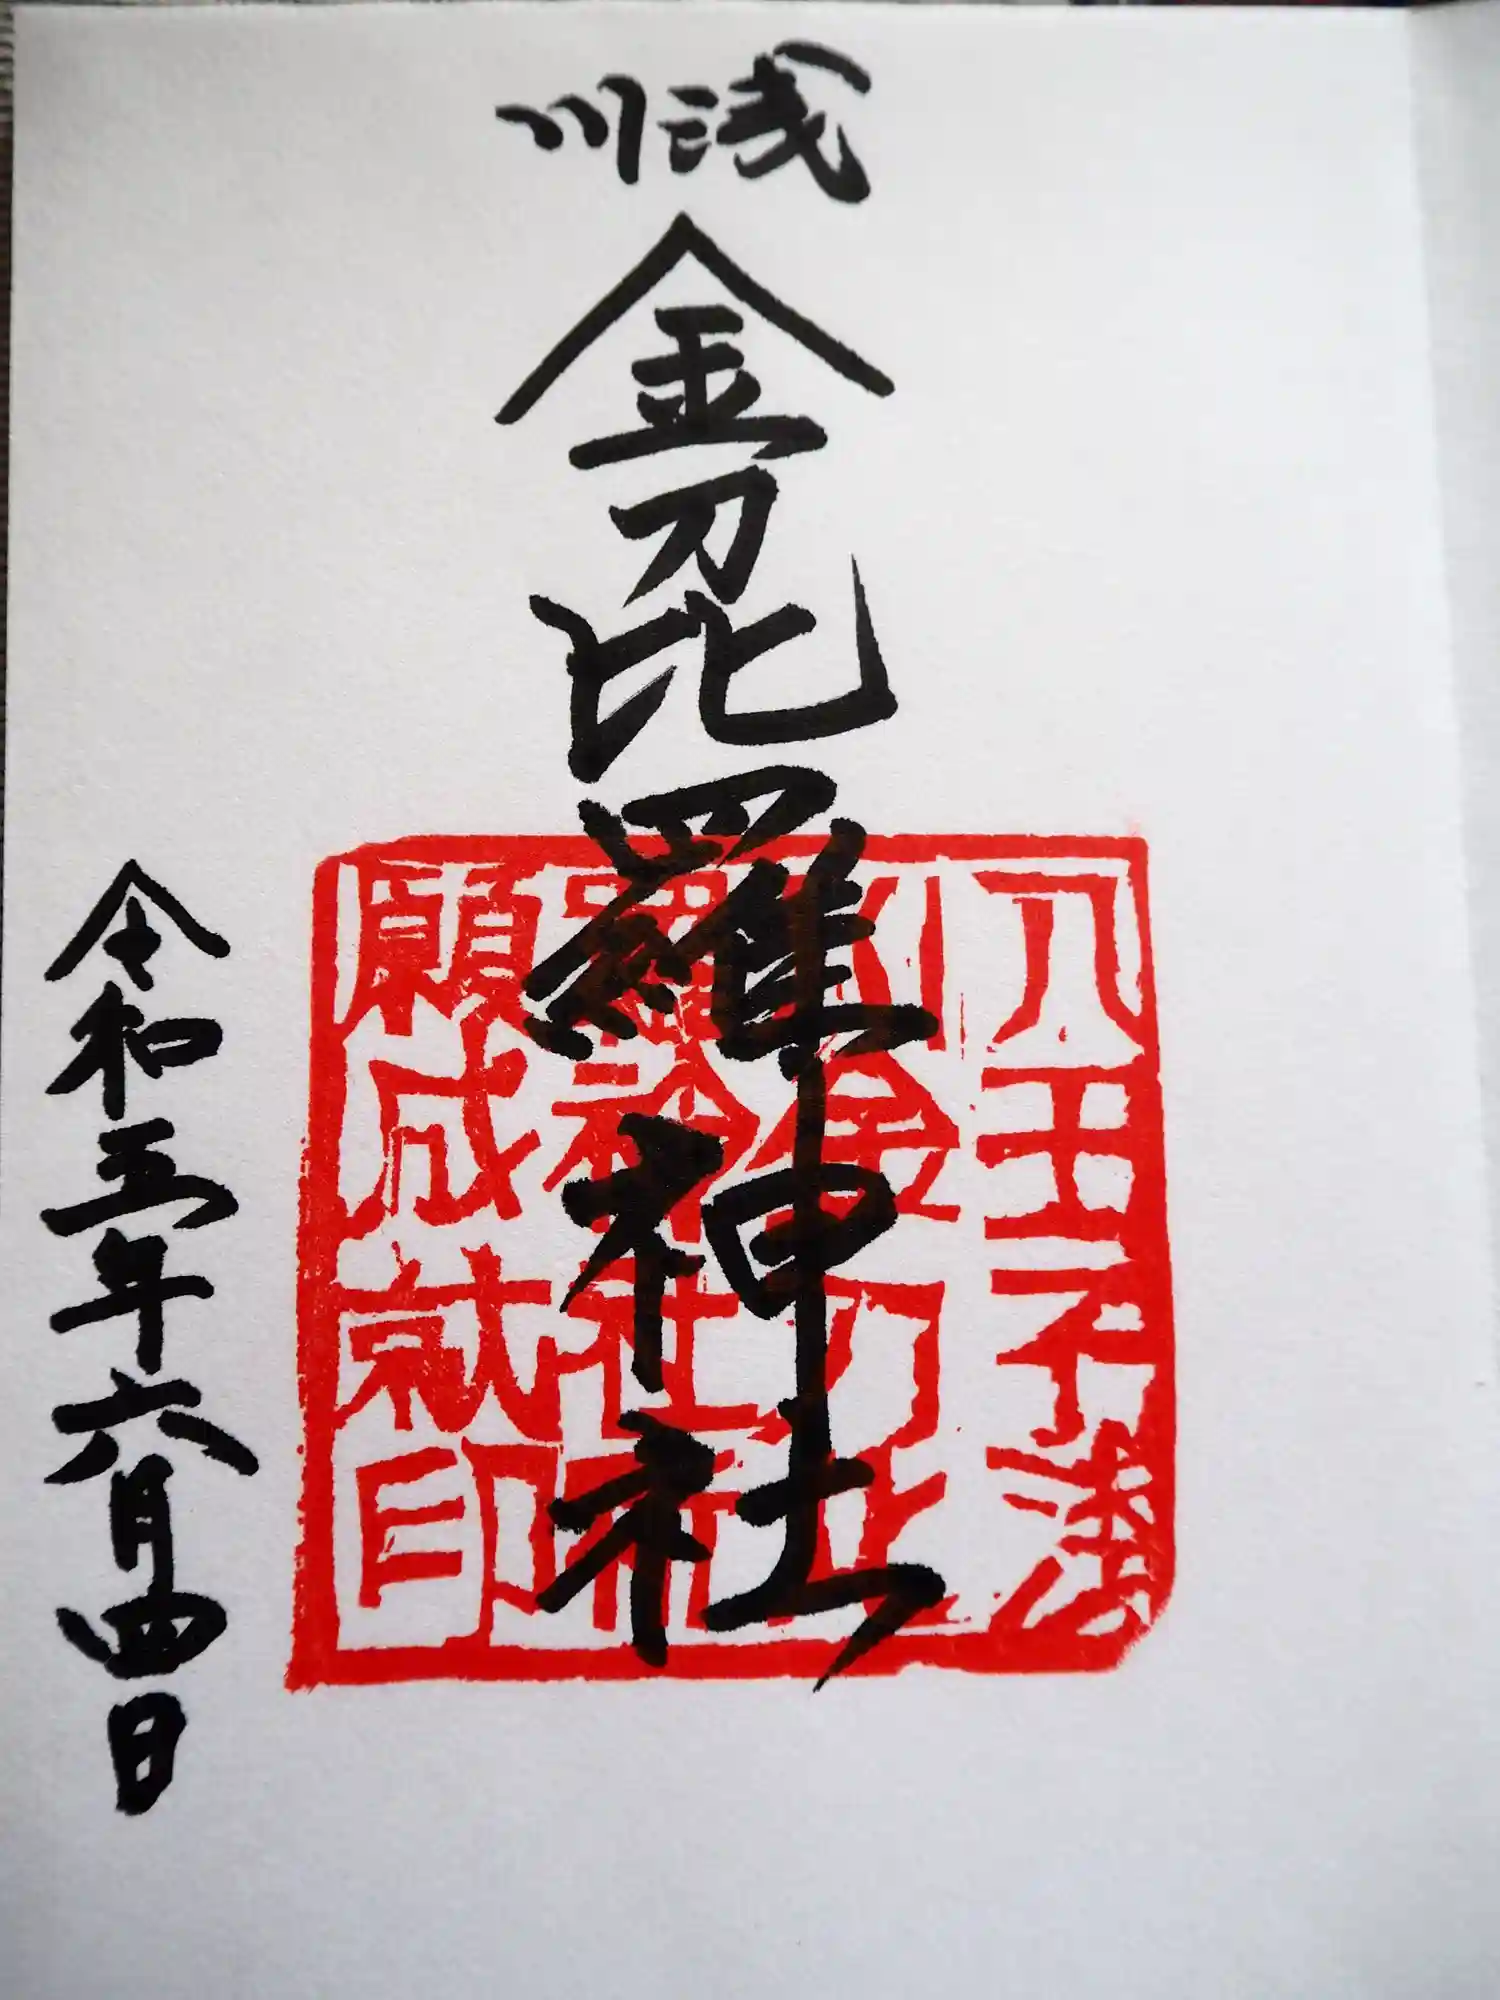 浅川
金刀比羅神社
令和三年六月四日
八王子浅
川金刀比
羅神社祈
願成就印